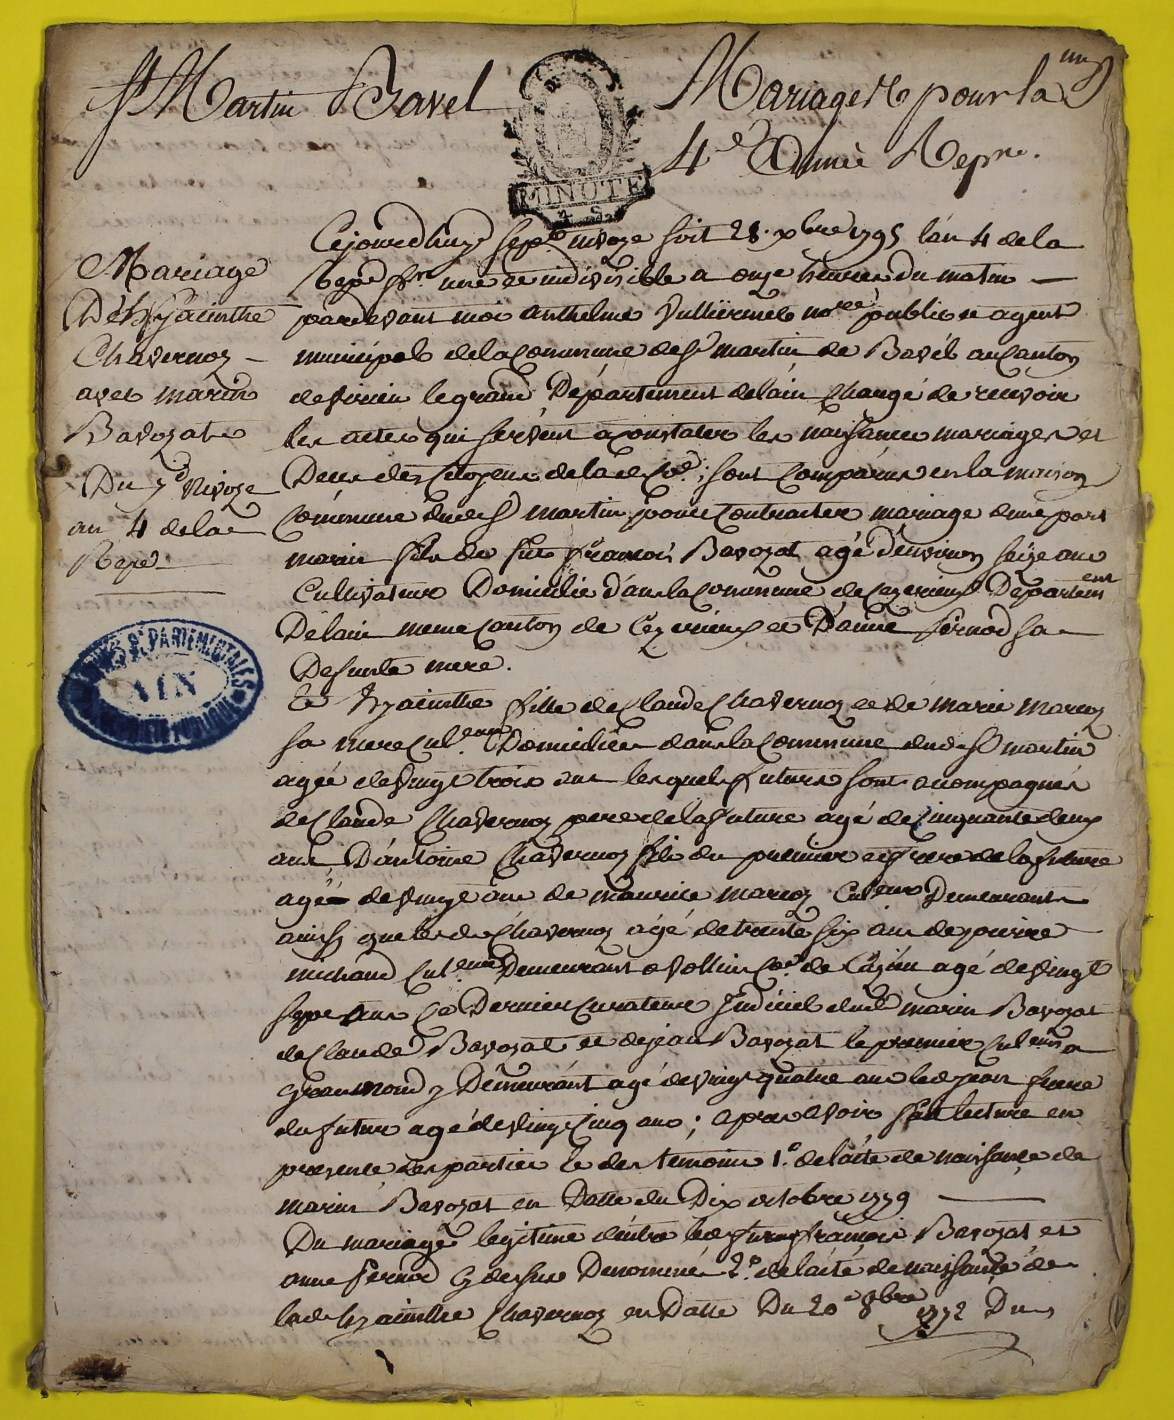 St Martin Bavel
Mariages pour la
4e Année Repne.
MINUTE
4 S
Mariage
D'hyacinthe
Chavernoz
avec marin
Bavozat
Du 7e Nivoze
an 4 de la
Repe
ARCHIVES DÉPARTEMENTALES
AIN
Cejourdhuy sept nivoze soit 28 xbre 1795 l'an 4 de la
Repe fse une et indivisible a onze heures du matin
pardevant moi anthelme Vulliermet nore public et agent
municipal de la Commune de St martin de Bavel au Canton
de Virieu le grand, Département de lain chargé de recevoir
les actes qui servent a constater les naissances mariages et
Deces des Citoyens de lad Coe; sont comparus en la maison
Commune dud St martin pour contracter mariage d'une part
marin fils de feu francois Bavozat agé d'environ seize ans
Cultivateur Domicilié dans la commune de Ceyzerieux Département
De lain meme canton de Ceyzerieux et D'anne fernod sa
Defunte mere.
Et hyacinthe fille de Claude Chavernoz et de marie marcoz
sa mere culeurs Domiciliée dans la Commune dud St martin
agée de vingt trois ans lesquels futurs sont accompagnés
de Claude Chavernoz pere de la future agé de cinquante deux
ans, D'antoine Chavernoz fils du premier et frere de la future
agé de vingt ans de maurice marcoz Culeur Demeurant
ainsy que les d Chavernoz agé de trente six ans de pierre
michaud culeur Demeurant a Vollin Coe de Cuzieu agé de vingt
sept ans Ce Dernier curateur dud marin Bavozat
de Claude Bavozat et de jean Bavozat le premier culeur a
grammond y Demeurant agé de vingt quatre ans led jean frere
du futur agé de vingt cinq ans; apres avoir fait lecture en
presence des parties et des temoins 1.o de l'acte de naissance de
marin Bavozat en Datte du Dix octobre 1779
Du mariage legitime d'entre led feu francois Bavozat et
anne fernod cy dessus Denommés 2.o de l'acte de naissance de
lad hyacinthe Chavernoz en Datte Du 20 e 8bre 1772 Du